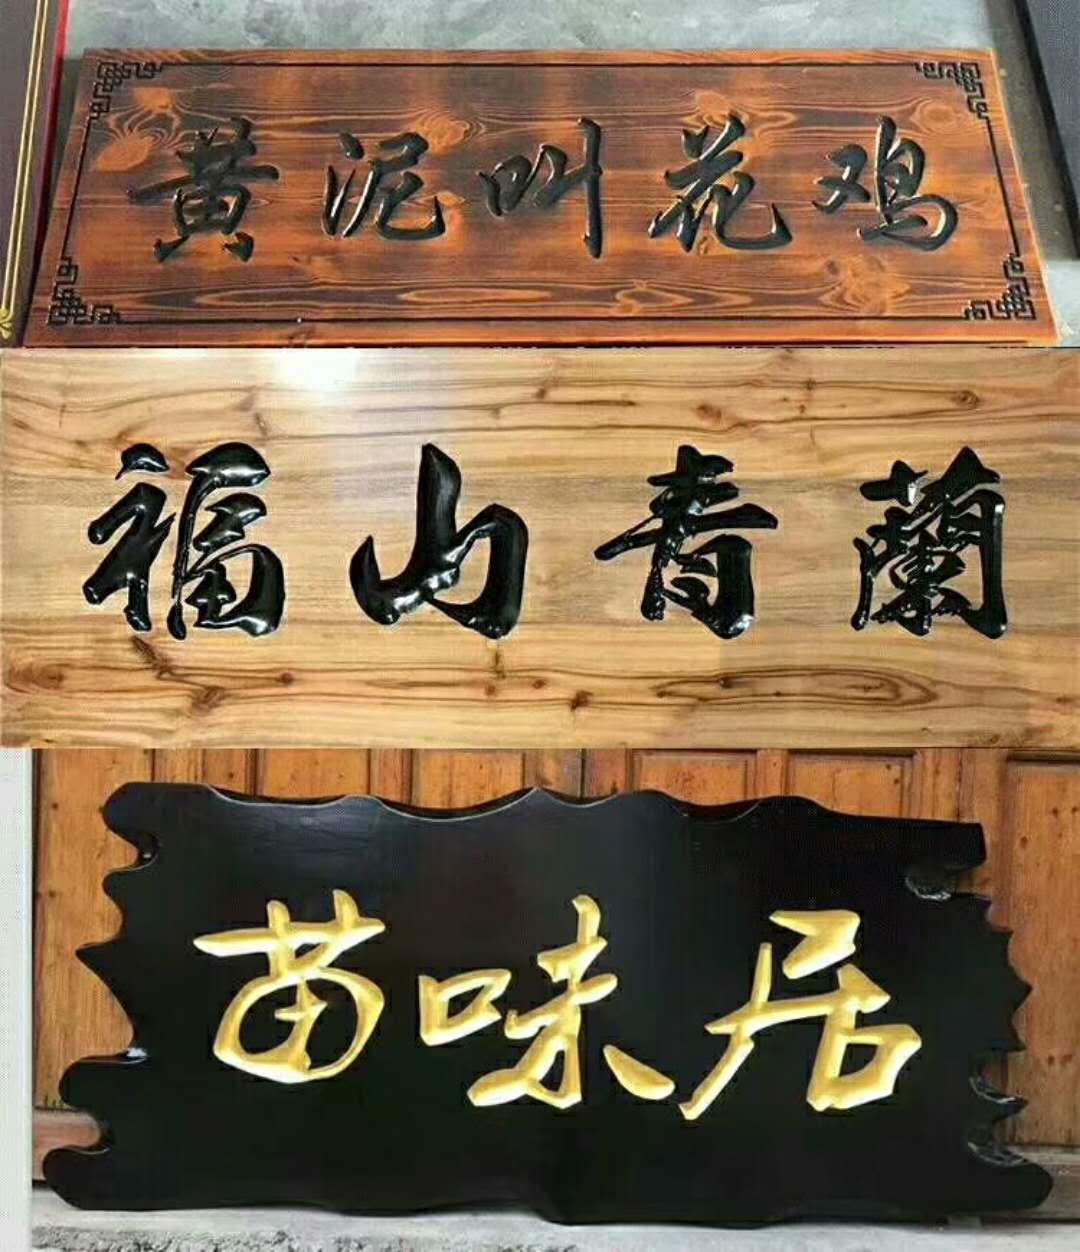 黄泥叫花鸡
福山青蘭
苗味居